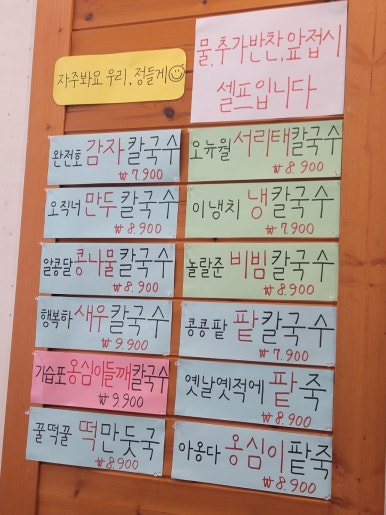 자주봐요 우리, 정들게
물, 추가반찬, 앞접시
셀프입니다
완전호 감자칼국수
₩7,900
오직너 만두칼국수
₩8,900
알콩달 콩나물칼국수
₩8,900
행복하 새우칼국수
₩9,900
가슴포 옹심이들깨칼국수
₩9,900
꿀떡꿀 떡만둣국
₩8,900
오뉴월 서리태칼국수
₩8,900
이냉치 냉칼국수
₩7,900
놀랄준 비빔칼국수
₩8,900
콩콩팥 팥칼국수
₩7,900
옛날옛적에 팥죽
₩8,900
아옹다 옹심이팥죽
₩8,900